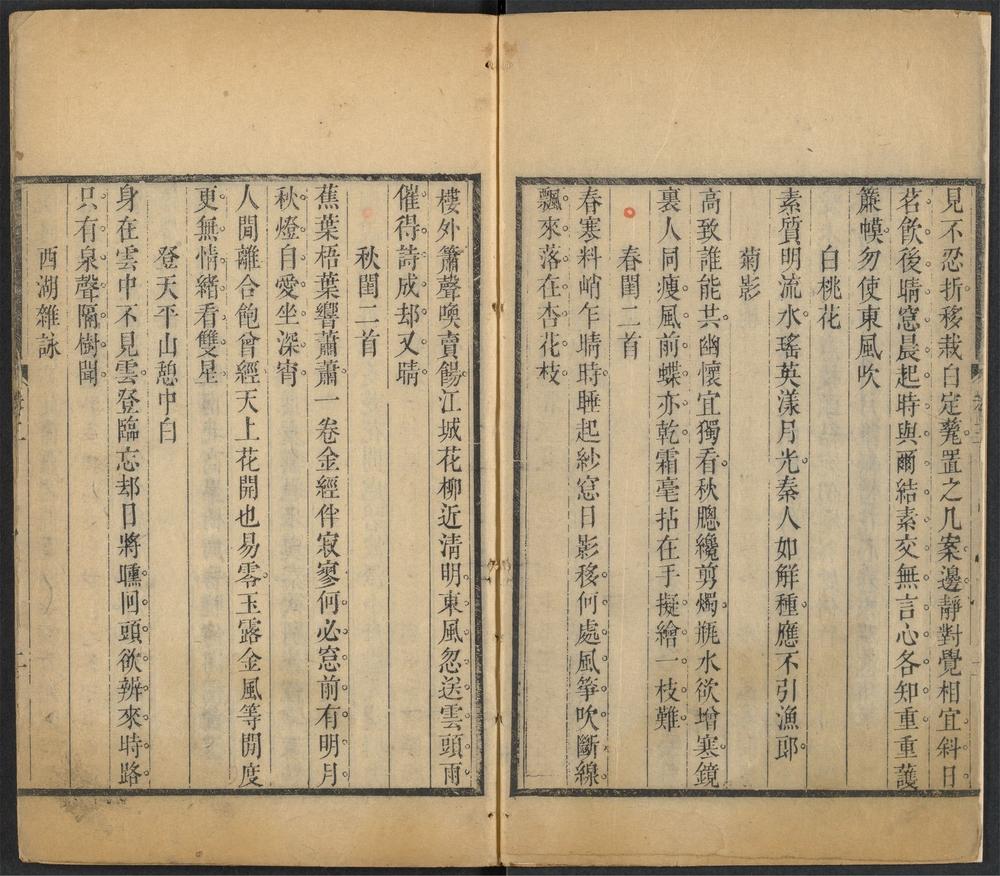 見不忍折移栽白定甆置之几案邊靜對覺相宜斜日
茗飲後晴窓晨起時與爾結素交無言心各知重重護
簾幙勿使東風吹
白桃花
素質明流水瑤英漾月光秦人如解種應不引漁郎
菊影
高致誰能共幽懷宜獨看秋牕纔剪燭瓶水欲增寒鏡
裏人同瘦風前蝶亦乾霜毫拈在手擬繪一枝難
春閨二首
春寒料峭乍晴時睡起紗窓日影移何處風箏吹斷線
飄來落在杏花枝
樓外簫聲喚賣餳江城花柳近清明東風忽送雲頭雨
催得詩成却又晴
秋閨二首
蕉葉梧葉響蕭蕭一卷金經伴寂寥何必窓前有明月
秋燈自愛坐深宵
人間離合飽曾經天上花開也易零玉露金風等閒度
更無情緒看雙星
登天平山憩中白
身在雲中不見雲登臨忘却日將曛回頭欲辨來時路
只有泉聲隔樹聞
西湖雜詠